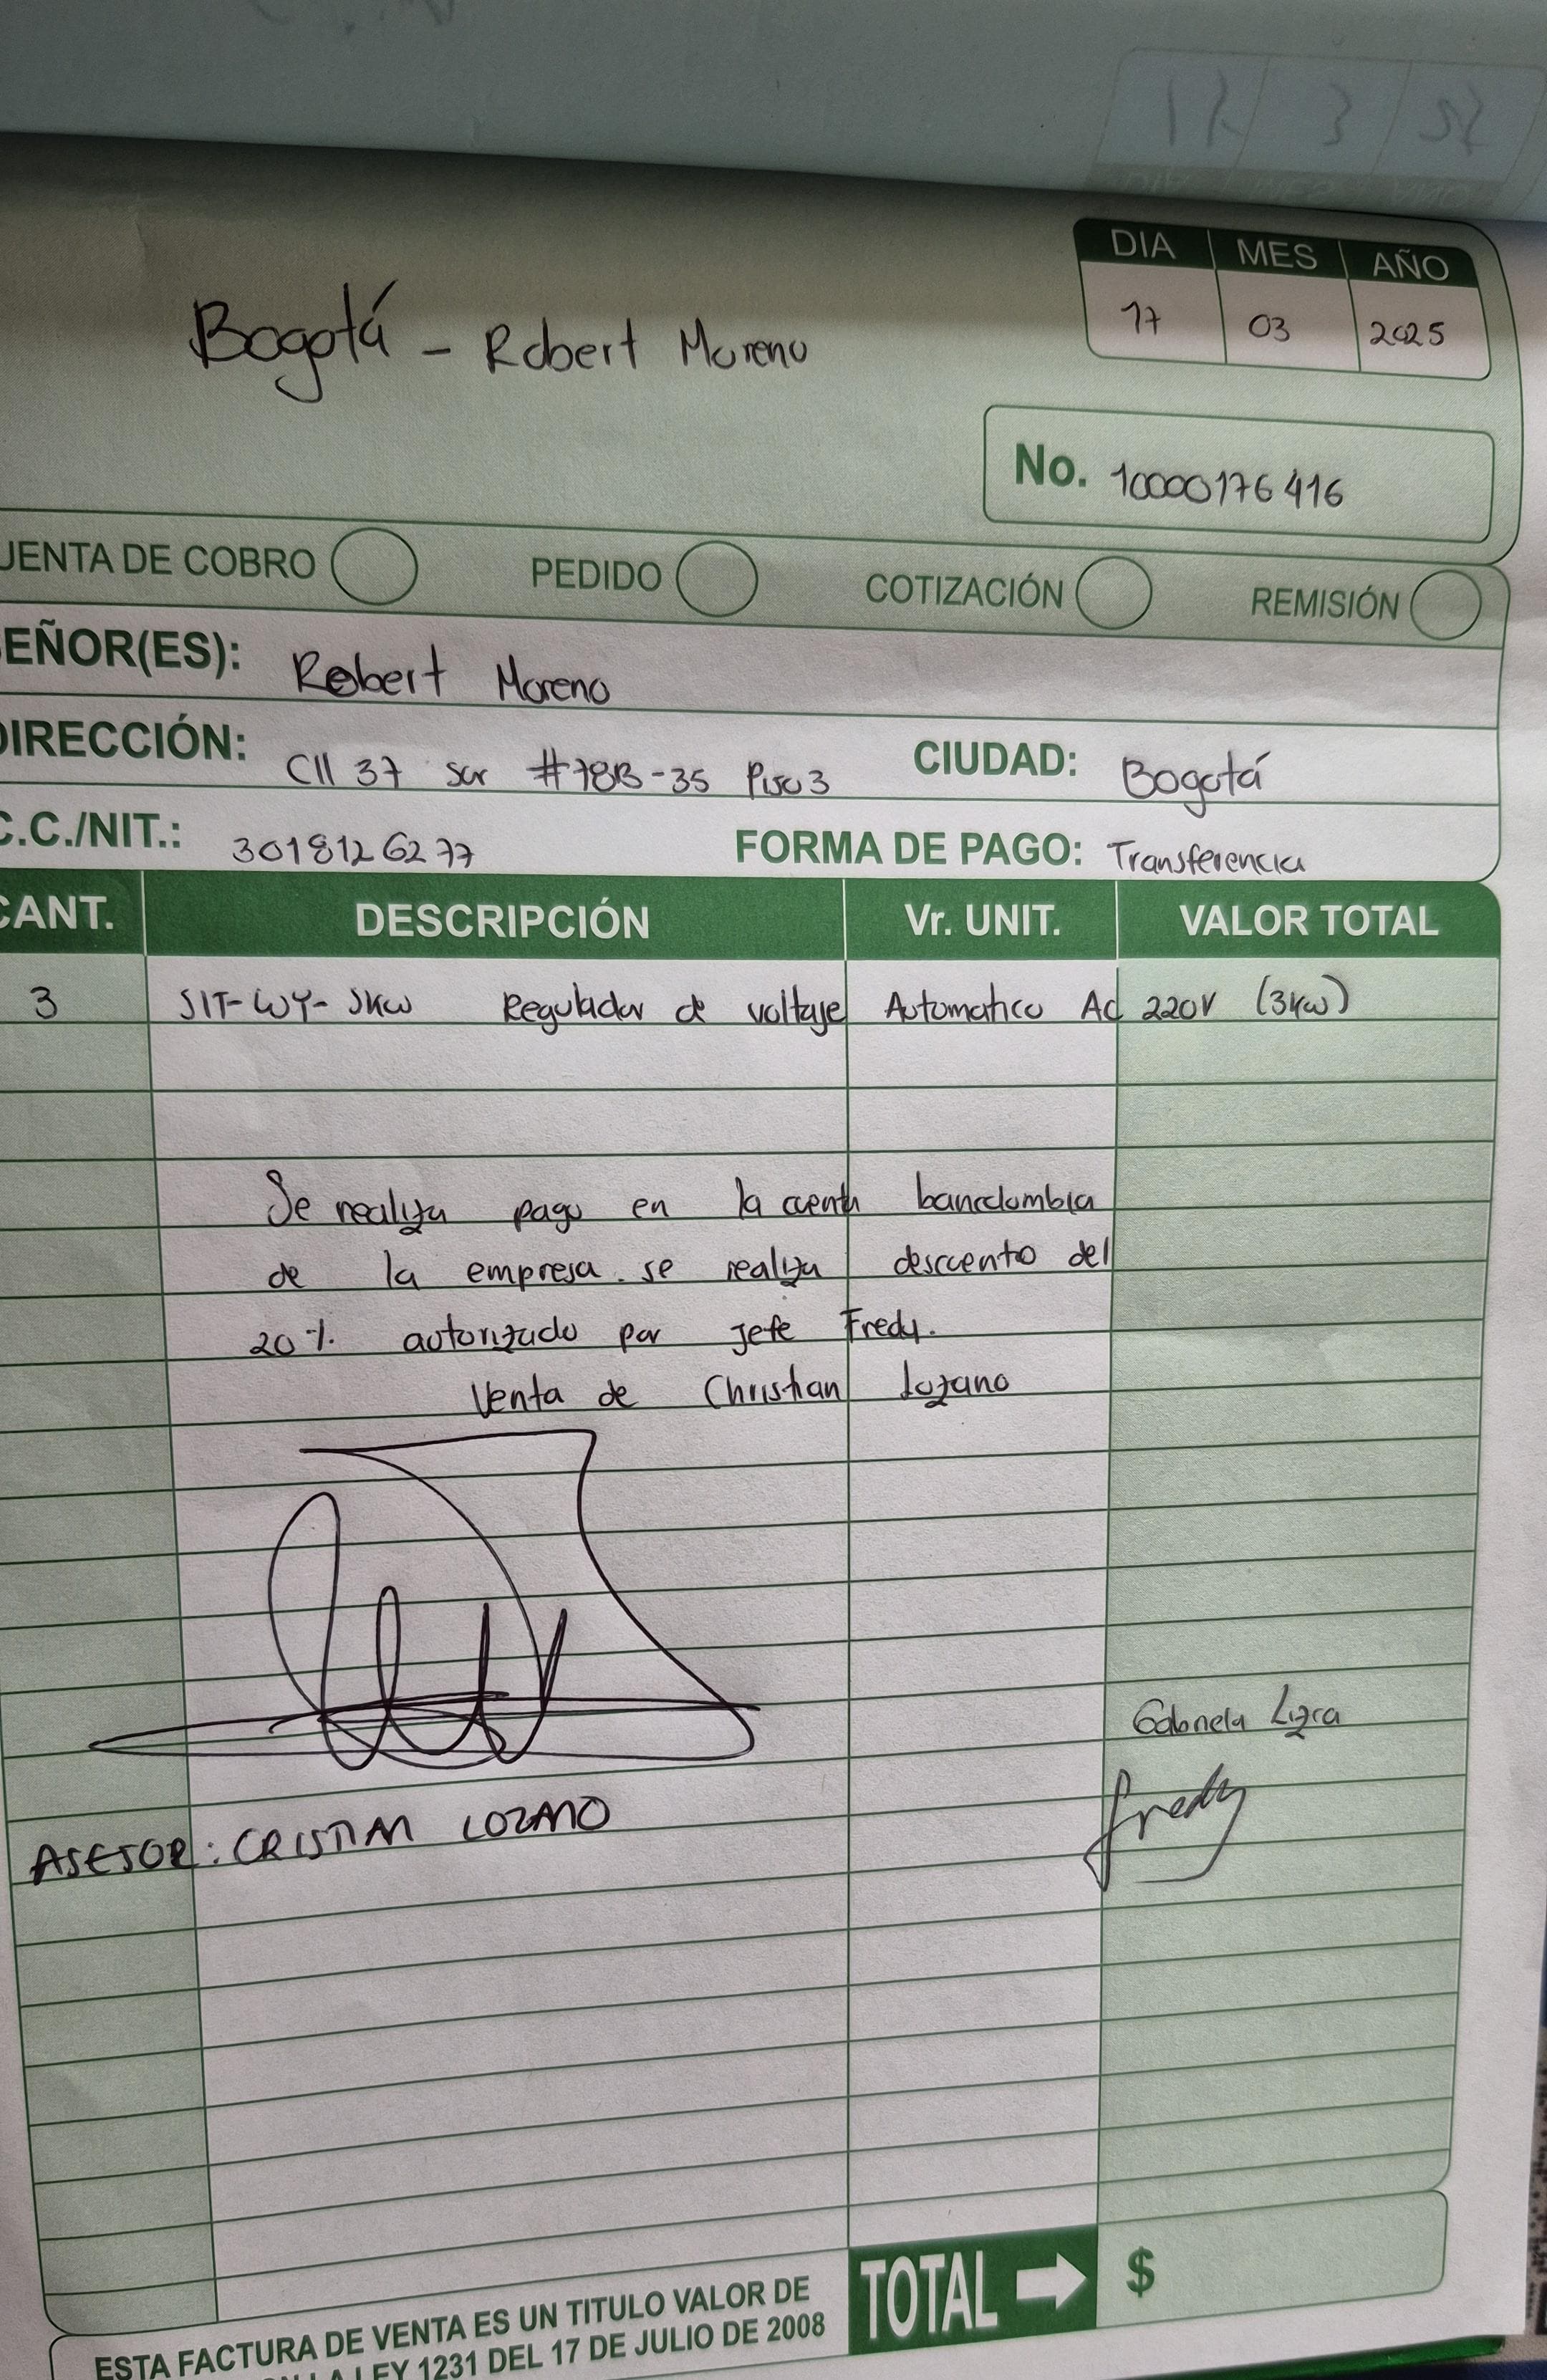 DIA MES AÑO
17 03 2025
Bogotá - Robert Moreno
No. 10000176416
UENTA DE COBRO PEDIDO COTIZACIÓN REMISIÓN
SEÑOR(ES): Robert Moreno
DIRECCIÓN: Cll 37 sur #78B-35 Piso 3 CIUDAD: Bogotá
C.C./NIT.: 3018126277 FORMA DE PAGO: Transferencia
CANT. DESCRIPCIÓN Vr. UNIT. VALOR TOTAL
3 SIT-WY-3KW Regulador de voltaje Automatico Ac 220V (3kw)
Se realiza pago en la cuenta bancolombia
de la empresa. se realiza descuento del
20% autorizado por jefe Fredy.
Venta de Christian Lozano
Gabriela
Fredy
ASESOR: CRISTIAN LOZANO
TOTAL $
ESTA FACTURA DE VENTA ES UN TITULO VALOR DE
LA LEY 1231 DEL 17 DE JULIO DE 2008